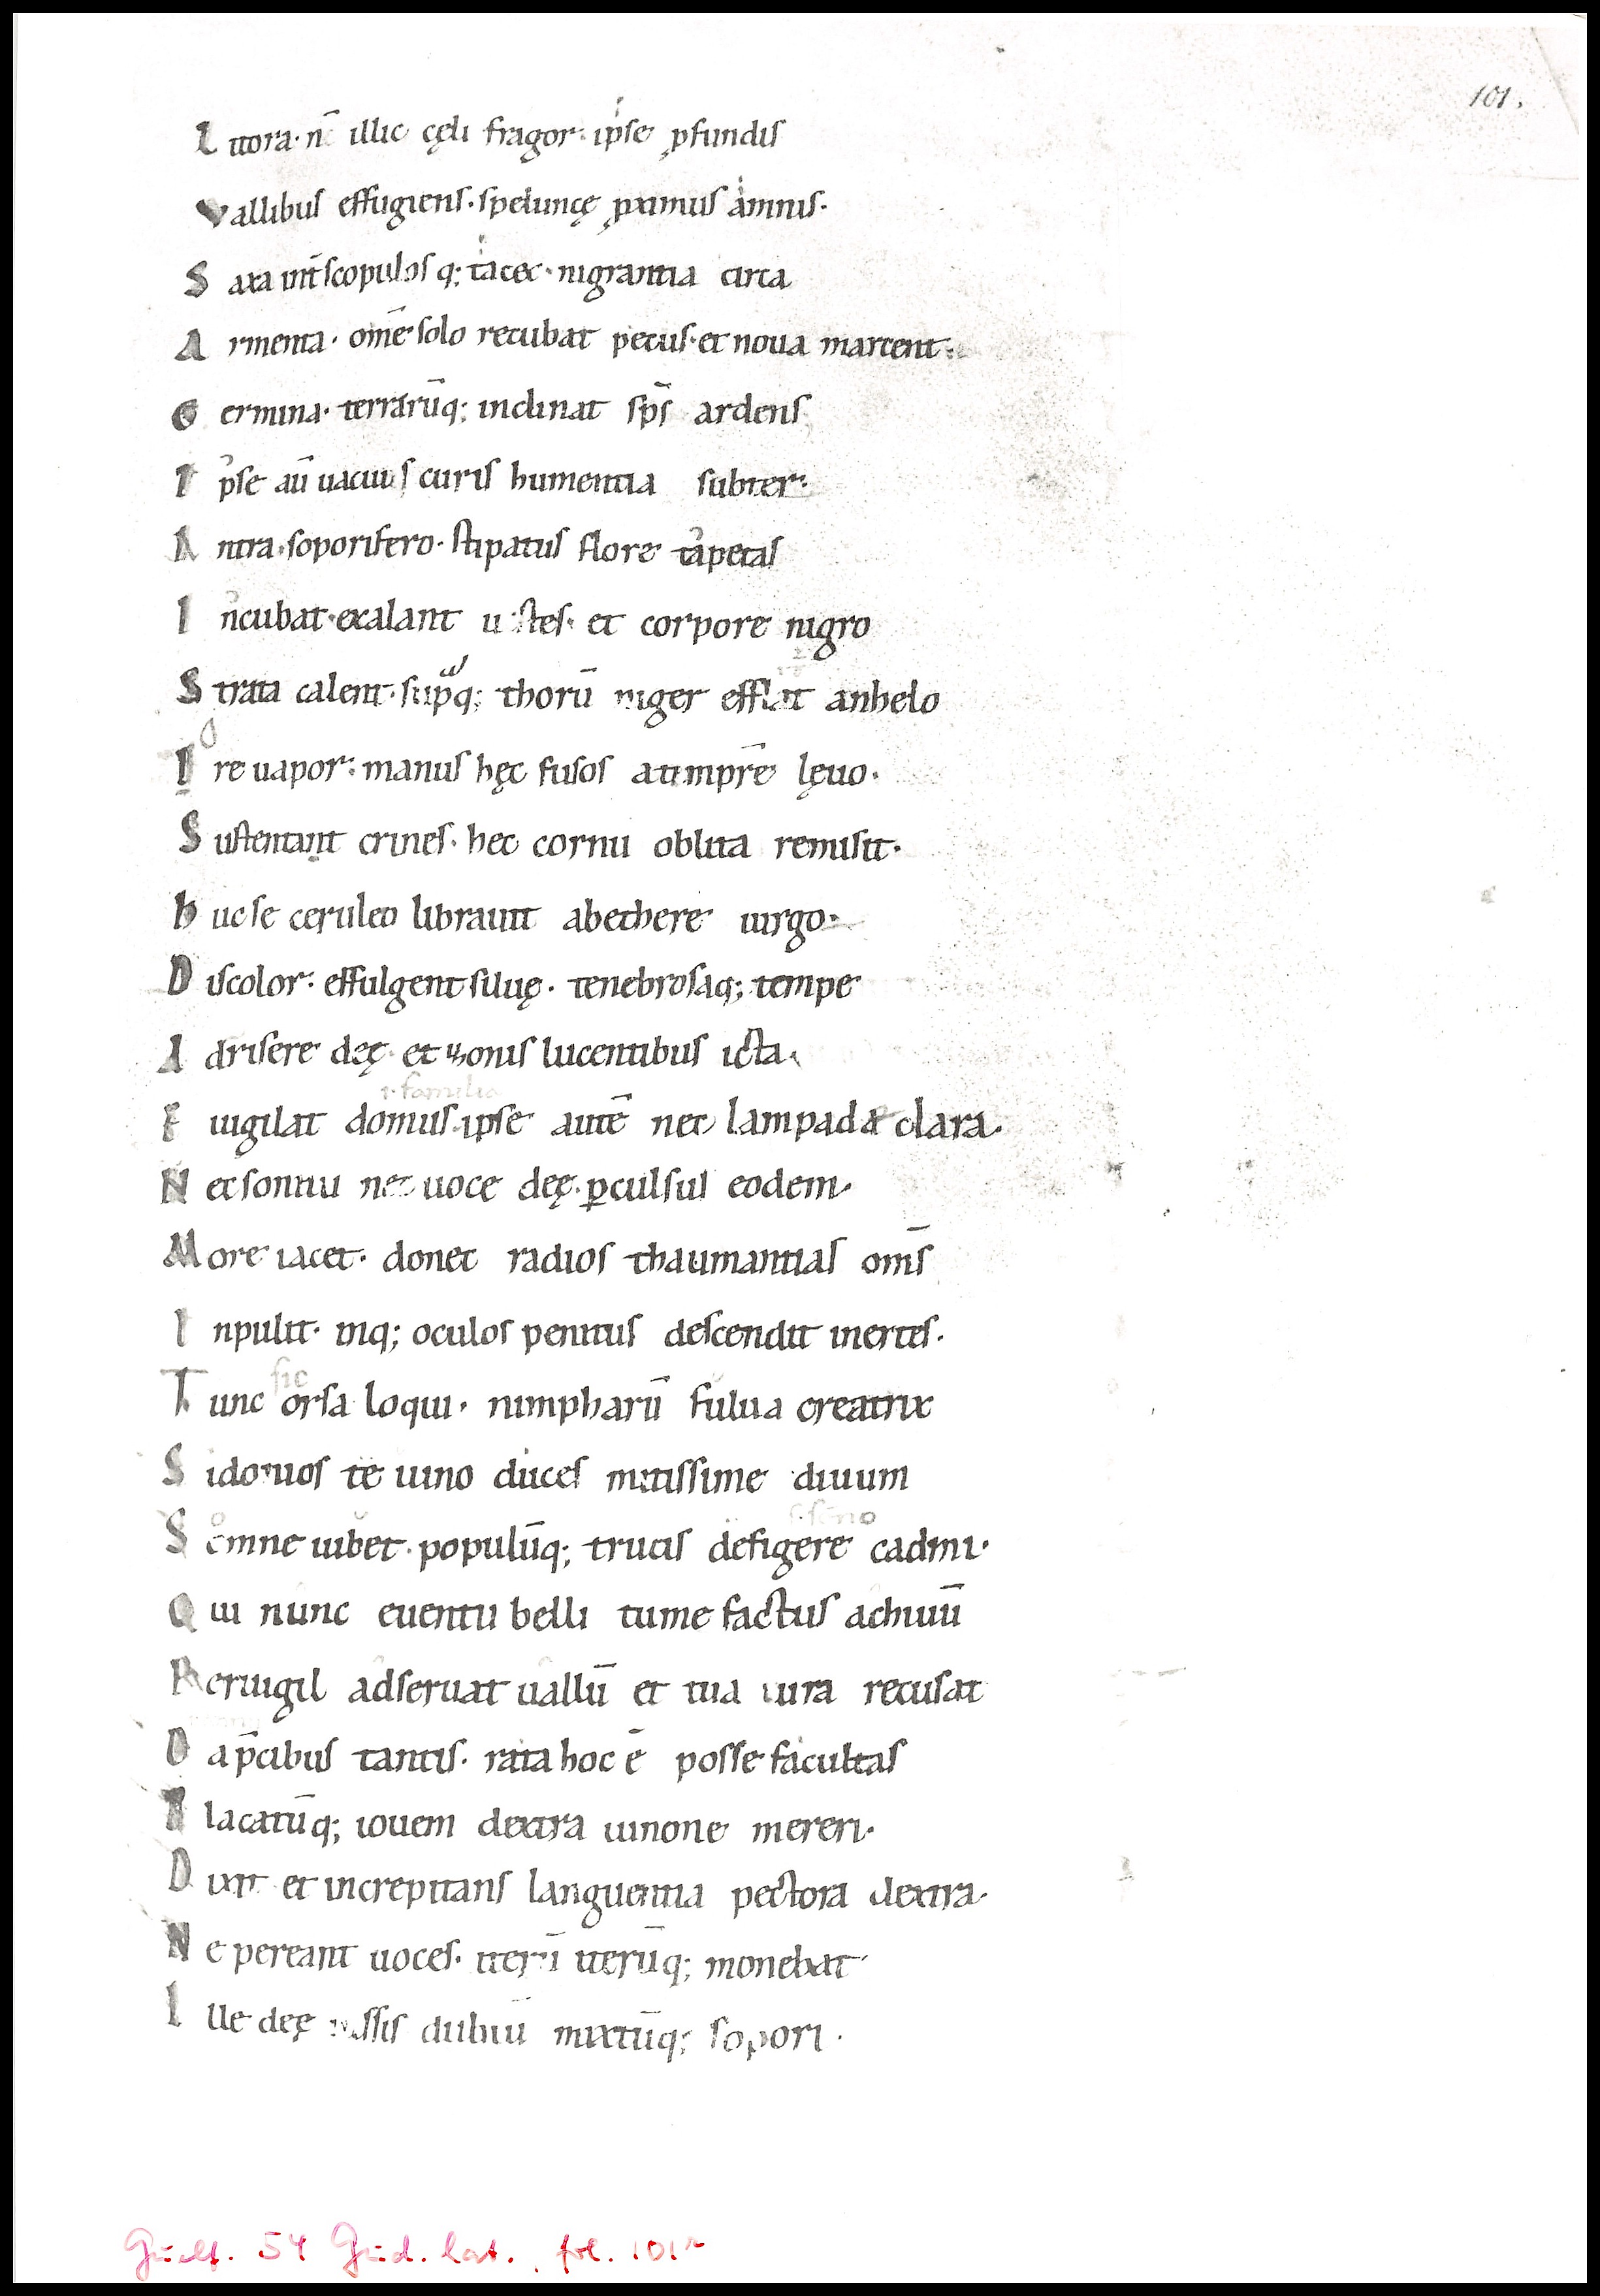 101.
L ittora. n̄ illic cęli fragor. ipse ꝓfundis
Vallibus effugiens. speluncę ꝓximus amnis.
S axa int̄ scopulosq; tacet. nigrantia circa
A rmenta. om̄e solo recubat pecus. et noua marcent.
G ermina. terrarūq; inclinat sp̄s ardens
I pse aū uacuus curis humentia subter.
A ntra. soporifero. stipatus flore tapetas
I ncubat. exalant uestes. et corpore nigro
S trata calent. sup̄q; thorū niger efflat anhelo
O re uapor. manus hęc fusos a timpr̄e lęuo.
S ustentant crines. hec cornu oblita remisit.
h uc se ceruleo librauit abethere uirgo.
D iscolor. effulgent siluę. tenebrosaq; tempe
A drisere deę. et zonis lucentibus icta.
i. familia
E uigilat domus. ipse autē nec lampada clara.
N ec sonitu nec uoce deę. ꝑculsus eodem.
M ore iacet. donec radios thaumantias om̄s
I npulit. inq; oculos penitus descendit inertes.
sic
T unc orsa loqui. nimpharū fulua creatrix
S idonios te iuno duces mitissime diuum
s. somno
S omne iubet. populūq; trucis defigere cadmi.
Q ui nunc euentu belli tumefactus achiuū
P eruigil adseruat uallū et tua iura recusat
D a p̄cibus tantis. rata hoc ē posse facultas
P lacatūq; iouem dextra iunone mereri.
D ixit et increpitans languentia pectora dextra.
N e pereant uoces. iterū iterūq; monebat
I lle deę iussis dubiū mixtūq; sopori.
Guelf. 54 Gud. lat., fol. 101r